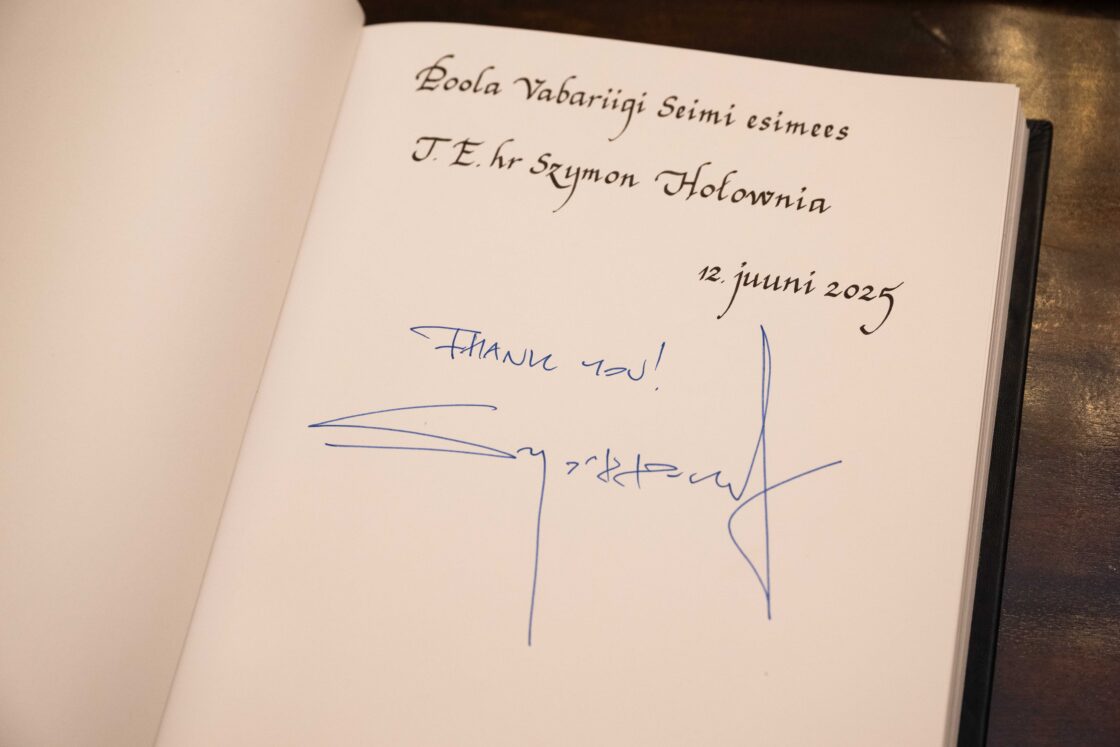 Poola Vabariigi Seimi esimees
T. E. hr Szymon Hołownia
12. juuni 2025
THANK YOU!